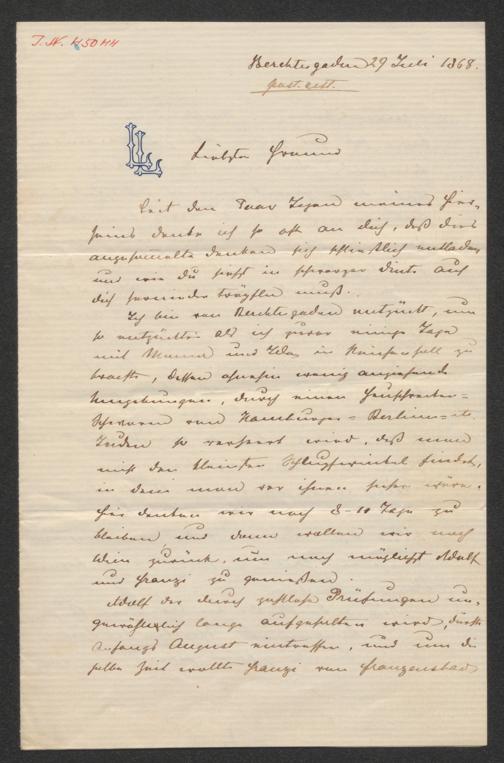 I. N. 
Berchtesgaden 29 Juli 1868.
post. rest.
LL
Liebster Freund
Seit den Paar Tagen meines Hier-
seins denke ich so oft an dich, daß dies
angesammelte Denken sich schließlich entladen
und wie du siehst in schwarzer Dinte auf
dich herunter tröpfeln muß.
Ich bin von Berchtesgaden entzückt, um
so entzückter als ich zuvor einige Tage
mit und Ida in Reichenhall zu
brachte, dessen ohnehin wenig anziehende
Umgebungen, durch einen Heuschrecken=
Schwarm von Hamburger= Berliner= etc
Juden so verheert wird, daß man
nicht den kleinsten Schlupfwinkel findet,
in dem man vor ihnen sicher wäre.
Hier denken wir noch 8-10 Tage zu
bleiben und dann wollen wir nach
Wien zurück, um noch möglichst Adolf
und Franzi zu genießen.
Adolf der durch Prüfungen un-
gewöhnlich lange aufgehalten wird, dürfte
Anfangs August eintreffen, und um die
selbe Zeit wollte Franzi von Franzensbad